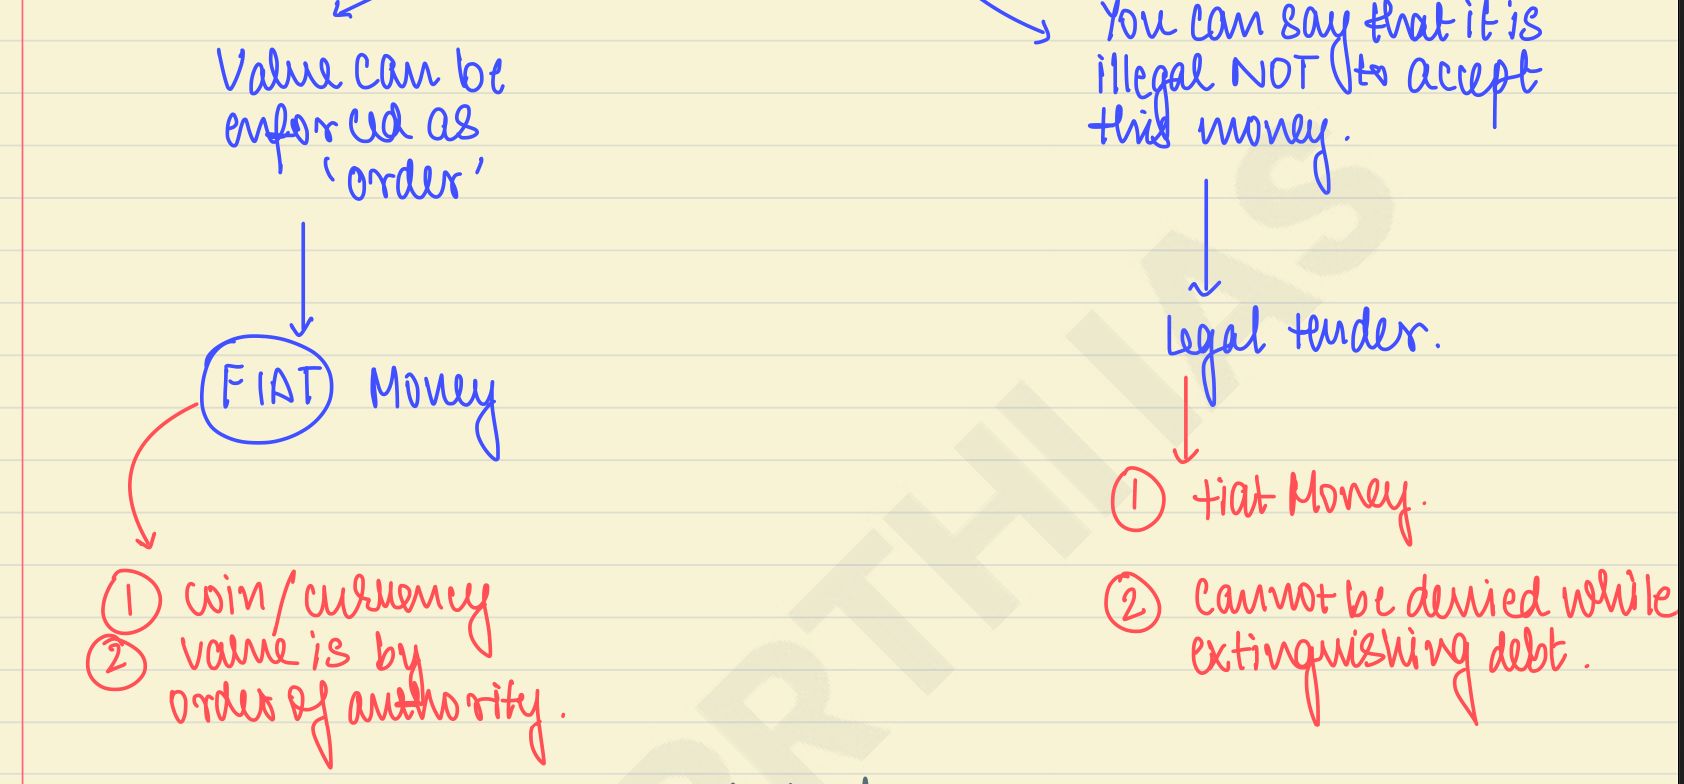 Value can be
enforced as
'order'
FIAT Money
① coin/currency
② value is by
order of authority.
You can say that it is
illegal NOT to accept
this money.
Legal tender.
① fiat Money.
② cannot be denied while
extinguishing debt.
RTHI IAS